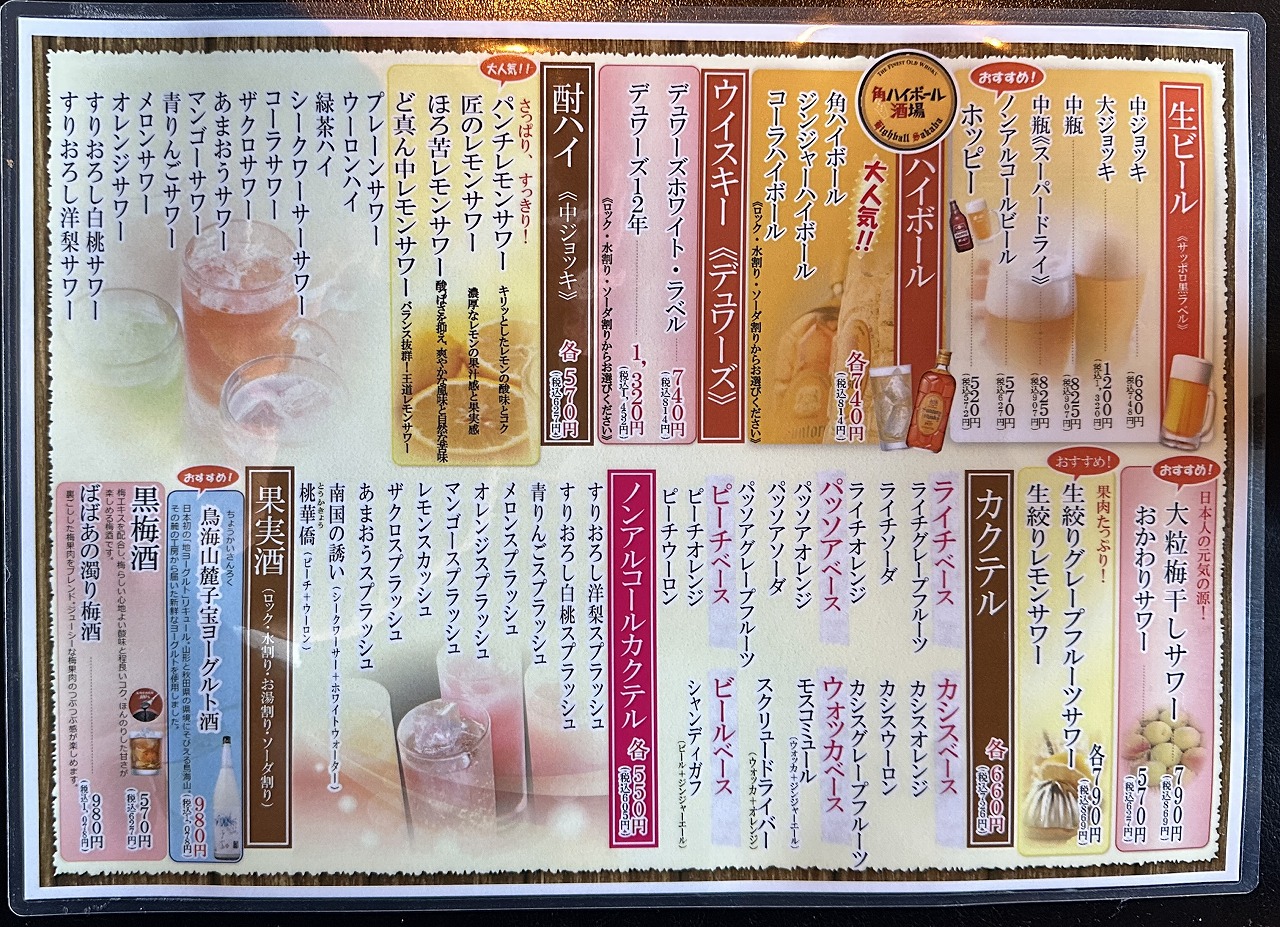 生ビール
《サッポロ黒ラベル》
中ジョッキ 680円
(税込748円)
大ジョッキ 1,200円
(税込1,320円)
中瓶 825円
(税込907円)
中瓶《スーパードライ》 825円
(税込907円)
おすすめ!
ノンアルコールビール 570円
(税込627円)
ホッピー 520円
(税込572円)
THE FINEST OLD WHISKY
角ハイボール
酒場
Highball Sakaba
ハイボール
大人気!!
角ハイボール
ジンジャーハイボール
コーラハイボール
各740円
(税込814円)
《ロック・水割り・ソーダ割りからお選びください》
ウイスキー《デュワーズ》
デュワーズホワイト・ラベル 740円
(税込814円)
デュワーズ12年 1,320円
(税込1,452円)
《ロック・水割り・ソーダ割りからお選びください》
酎ハイ《中ジョッキ》
各570円
(税込627円)
大人気!!
さっぱり、すっきり!
パンチレモンサワー キリッとしたレモンの酸味とコク
匠のレモンサワー 濃厚なレモンの果汁感と果実感
ほろ苦レモンサワー 酸っぱさを抑え、爽やかな風味と自然な苦味
ど真ん中レモンサワー バランス抜群!王道レモンサワー
プレーンサワー
ウーロンハイ
緑茶ハイ
シークワーサーサワー
コーラサワー
ザクロサワー
あまおうサワー
マンゴーサワー
青りんごサワー
メロンサワー
オレンジサワー
すりおろし白桃サワー
すりおろし洋梨サワー
おすすめ!
日本人の元気の源!
大粒梅干しサワー 790円
(税込869円)
おかわりサワー 570円
(税込627円)
おすすめ!
果肉たっぷり!
生絞りグレープフルーツサワー
生絞りレモンサワー
各790円
(税込869円)
カクテル
各660円
(税込726円)
ライチベース
ライチグレープフルーツ
ライチソーダ
ライチオレンジ
パッソアベース
パッソアオレンジ
パッソアソーダ
パッソアグレープフルーツ
ピーチベース
ピーチオレンジ
ピーチウーロン
カシスベース
カシスオレンジ
カシスウーロン
カシスグレープフルーツ
ウォッカベース
モスコミュール
(ウォッカ+ジンジャーエール)
スクリュードライバー
(ウォッカ+オレンジ)
ビールベース
シャンディガフ
(ビール+ジンジャーエール)
ノンアルコールカクテル
各550円
(税込605円)
すりおろし洋梨スプラッシュ
すりおろし白桃スプラッシュ
青りんごスプラッシュ
メロンスプラッシュ
オレンジスプラッシュ
マンゴースプラッシュ
レモンスカッシュ
ザクロスプラッシュ
あまおうスプラッシュ
南国の誘い(シークワーサー+ホワイトウォーター)
とうかきょう
桃華僑(ピーチ+ウーロン)
果実酒(ロック・水割り・お湯割り・ソーダ割り)
おすすめ!
ちょうかいさんろく
鳥海山麓子宝ヨーグルト酒 980円
(税込1,078円)
日本初の「地ヨーグルト」リキュール。山形と秋田県の県境にそびえる鳥海山
その麓の工房から届いた新鮮なヨーグルトを使用しました。
黒梅酒 570円
(税込627円)
梅エキスを配合し、梅らしい心地よい酸味と程良いコク、ほんのりした甘さが
楽しめる梅酒です。
ばばあの濁り梅酒 980円
(税込1,078円)
裏ごしした梅果肉をブレンド。ジューシーな梅果肉のつぶつぶ感が楽しめます。